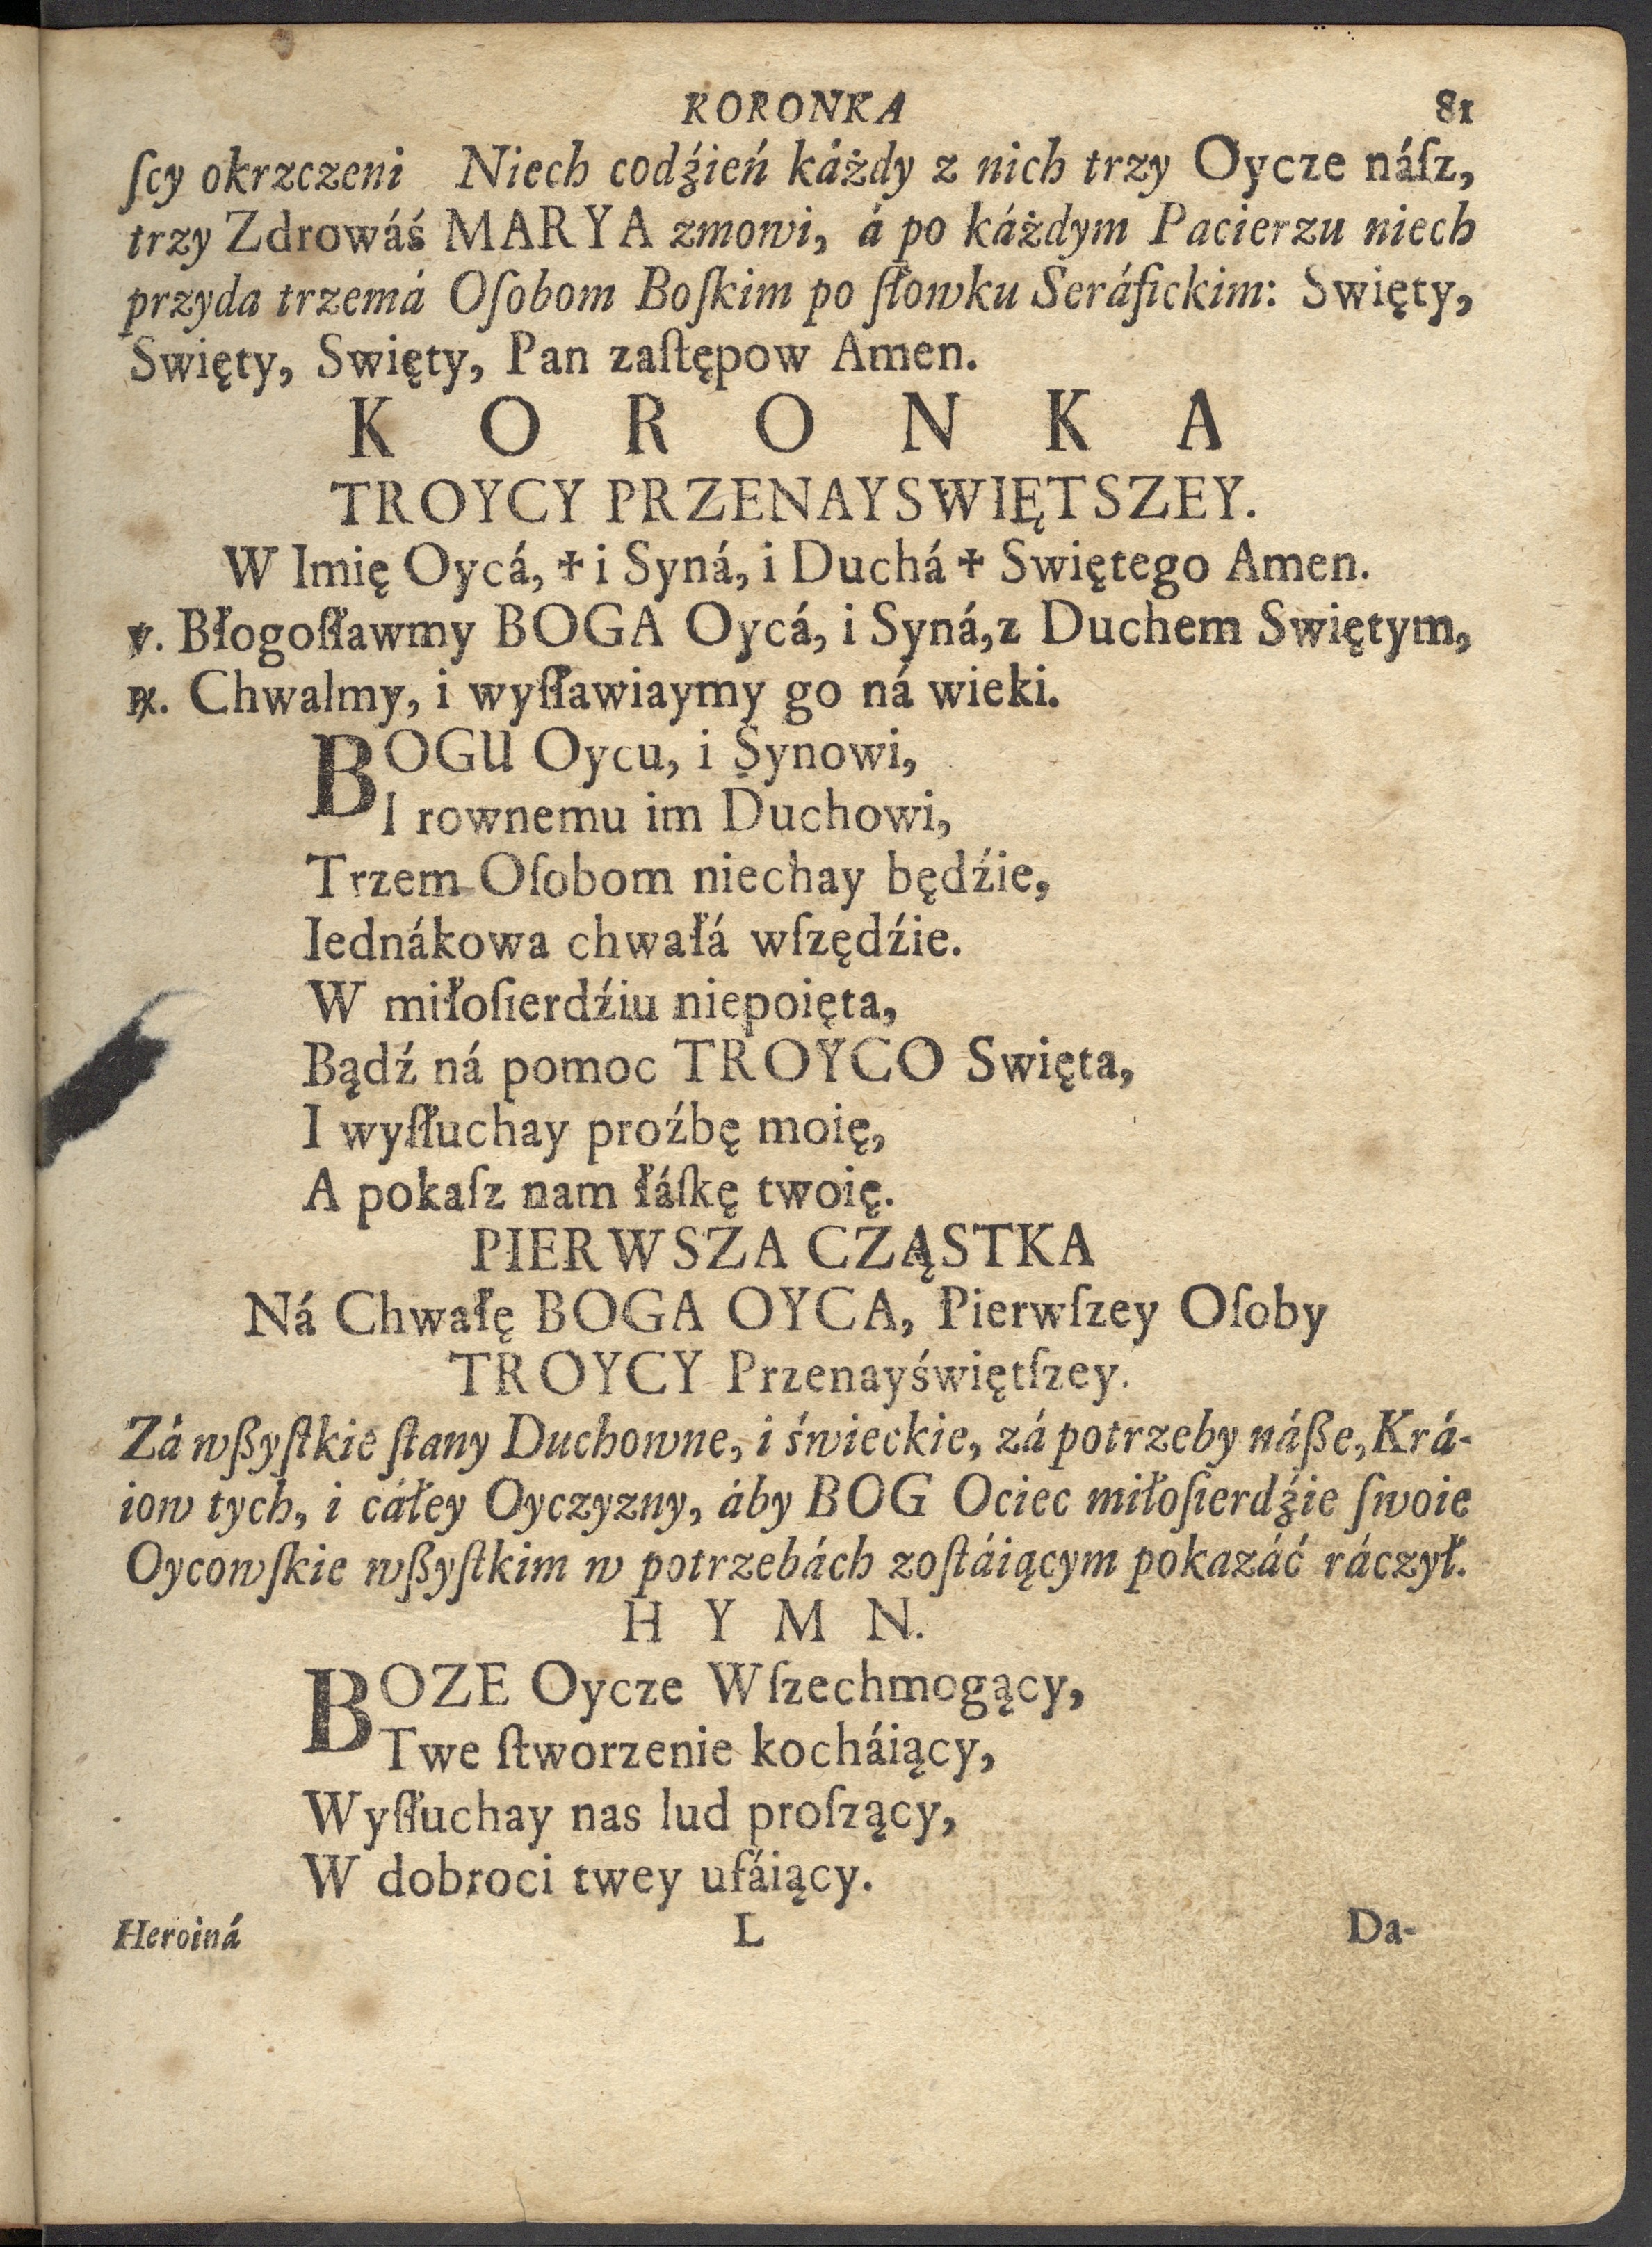 KORONKA 81
ſcy okrzczeni Niech codźień káżdy z nich trzy Oycze náſz,
trzy Zdrowáś MARYA zmowi, á po káżdym Pacierzu niech
przyda trzemá Oſobom Boſkim po ſłowku Seráfickim: Swięty,
Swięty, Swięty, Pan zaſtępow Amen.
K O R O N K A
TROYCY PRZENAYSWIĘTSZEY.
W Imię Oycá, ✝ i Syná, i Duchá ✝ Swiętego Amen.
℣. Błogoſławmy BOGA Oycá, i Syná,z Duchem Swiętym,
℟. Chwalmy, i wyſławiaymy go ná wieki.
BOGU Oycu, i Synowi,
I rownemu im Duchowi,
Trzem Oſobom niechay będźie,
Iednákowa chwałá wſzędźie.
W miłoſierdźiu niepoięta,
Bądź ná pomoc TROYCO Swięta,
I wyſłuchay proźbę moię,
A pokaſz nam łáſkę twoię.
PIERWSZA CZĄSTKA
Ná Chwałę BOGA OYCA, Pierwſzey Oſoby
TROYCY Przenayświętſzey.
Zá wßyſtkie ſtany Duchowne, i świeckie, zá potrzeby náße, Krá-
iow tych, i cáłey Oyczyzny, áby BOG Ociec miłoſierdźie ſwoie
Oycowſkie wßyſtkim w potrzebách zoſtáiącym pokazáć ráczył.
H Y M N.
BOZE Oycze Wſzechmogący,
Twe ſtworzenie kocháiący,
Wyſłuchay nas lud proſzący,
W dobroci twey ufáiący.
Heroiná L Da-